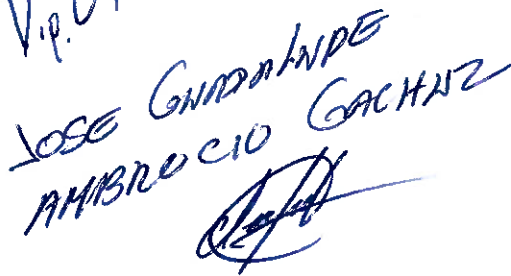 JOSE GUADALUPE
AMBROCIO GACHUZ